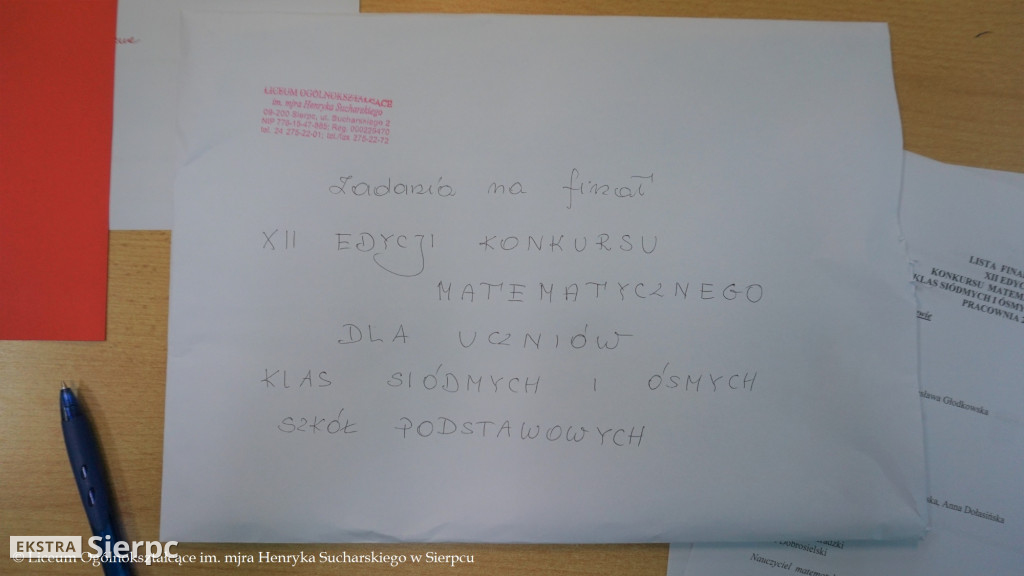 LICEUM OGÓLNOKSZTAŁCĄCE
im. mjra Henryka Sucharskiego
09-200 Sierpc, ul. Sucharskiego 2
tel. 24 275-22-01; tel./fax 275-22-72
Zadania na finał
XII EDYCJI KONKURSU
MATEMATYCZNEGO
DLA UCZNIÓW
KLAS SIÓDMYCH I ÓSMYCH
SZKÓŁ PODSTAWOWYCH
LISTA FINA
XII EDYC
KONKURSU MATEM
KLAS SIÓDMYCH I ÓSMY
PRACOWNIA 2
sława Głodkowska
ska, Anna Dobsińska
Dobrosielski
Nauczyciel matema
EKSTRA Sierpc
© Liceum Ogólnokształcące im. mjra Henryka Sucharskiego w Sierpcu